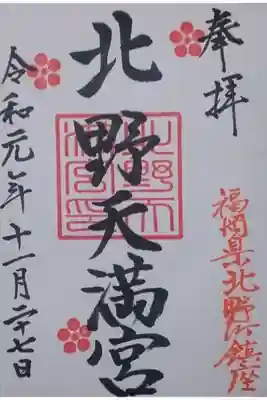 奉拝
福岡県北野町鎮座
北野天満宮
令和元年十一月二十七日